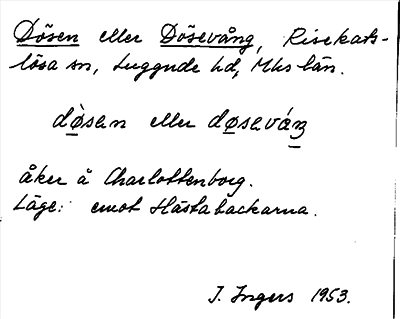 Dösen eller Dösevång, Risekats-
lösa sn, Luggude hd, Mhs län.
dø̀sen eller døseváŋ
åker å Charlottenborg.
Läge: emot Hästabackarna.
I. Ingers 1953.